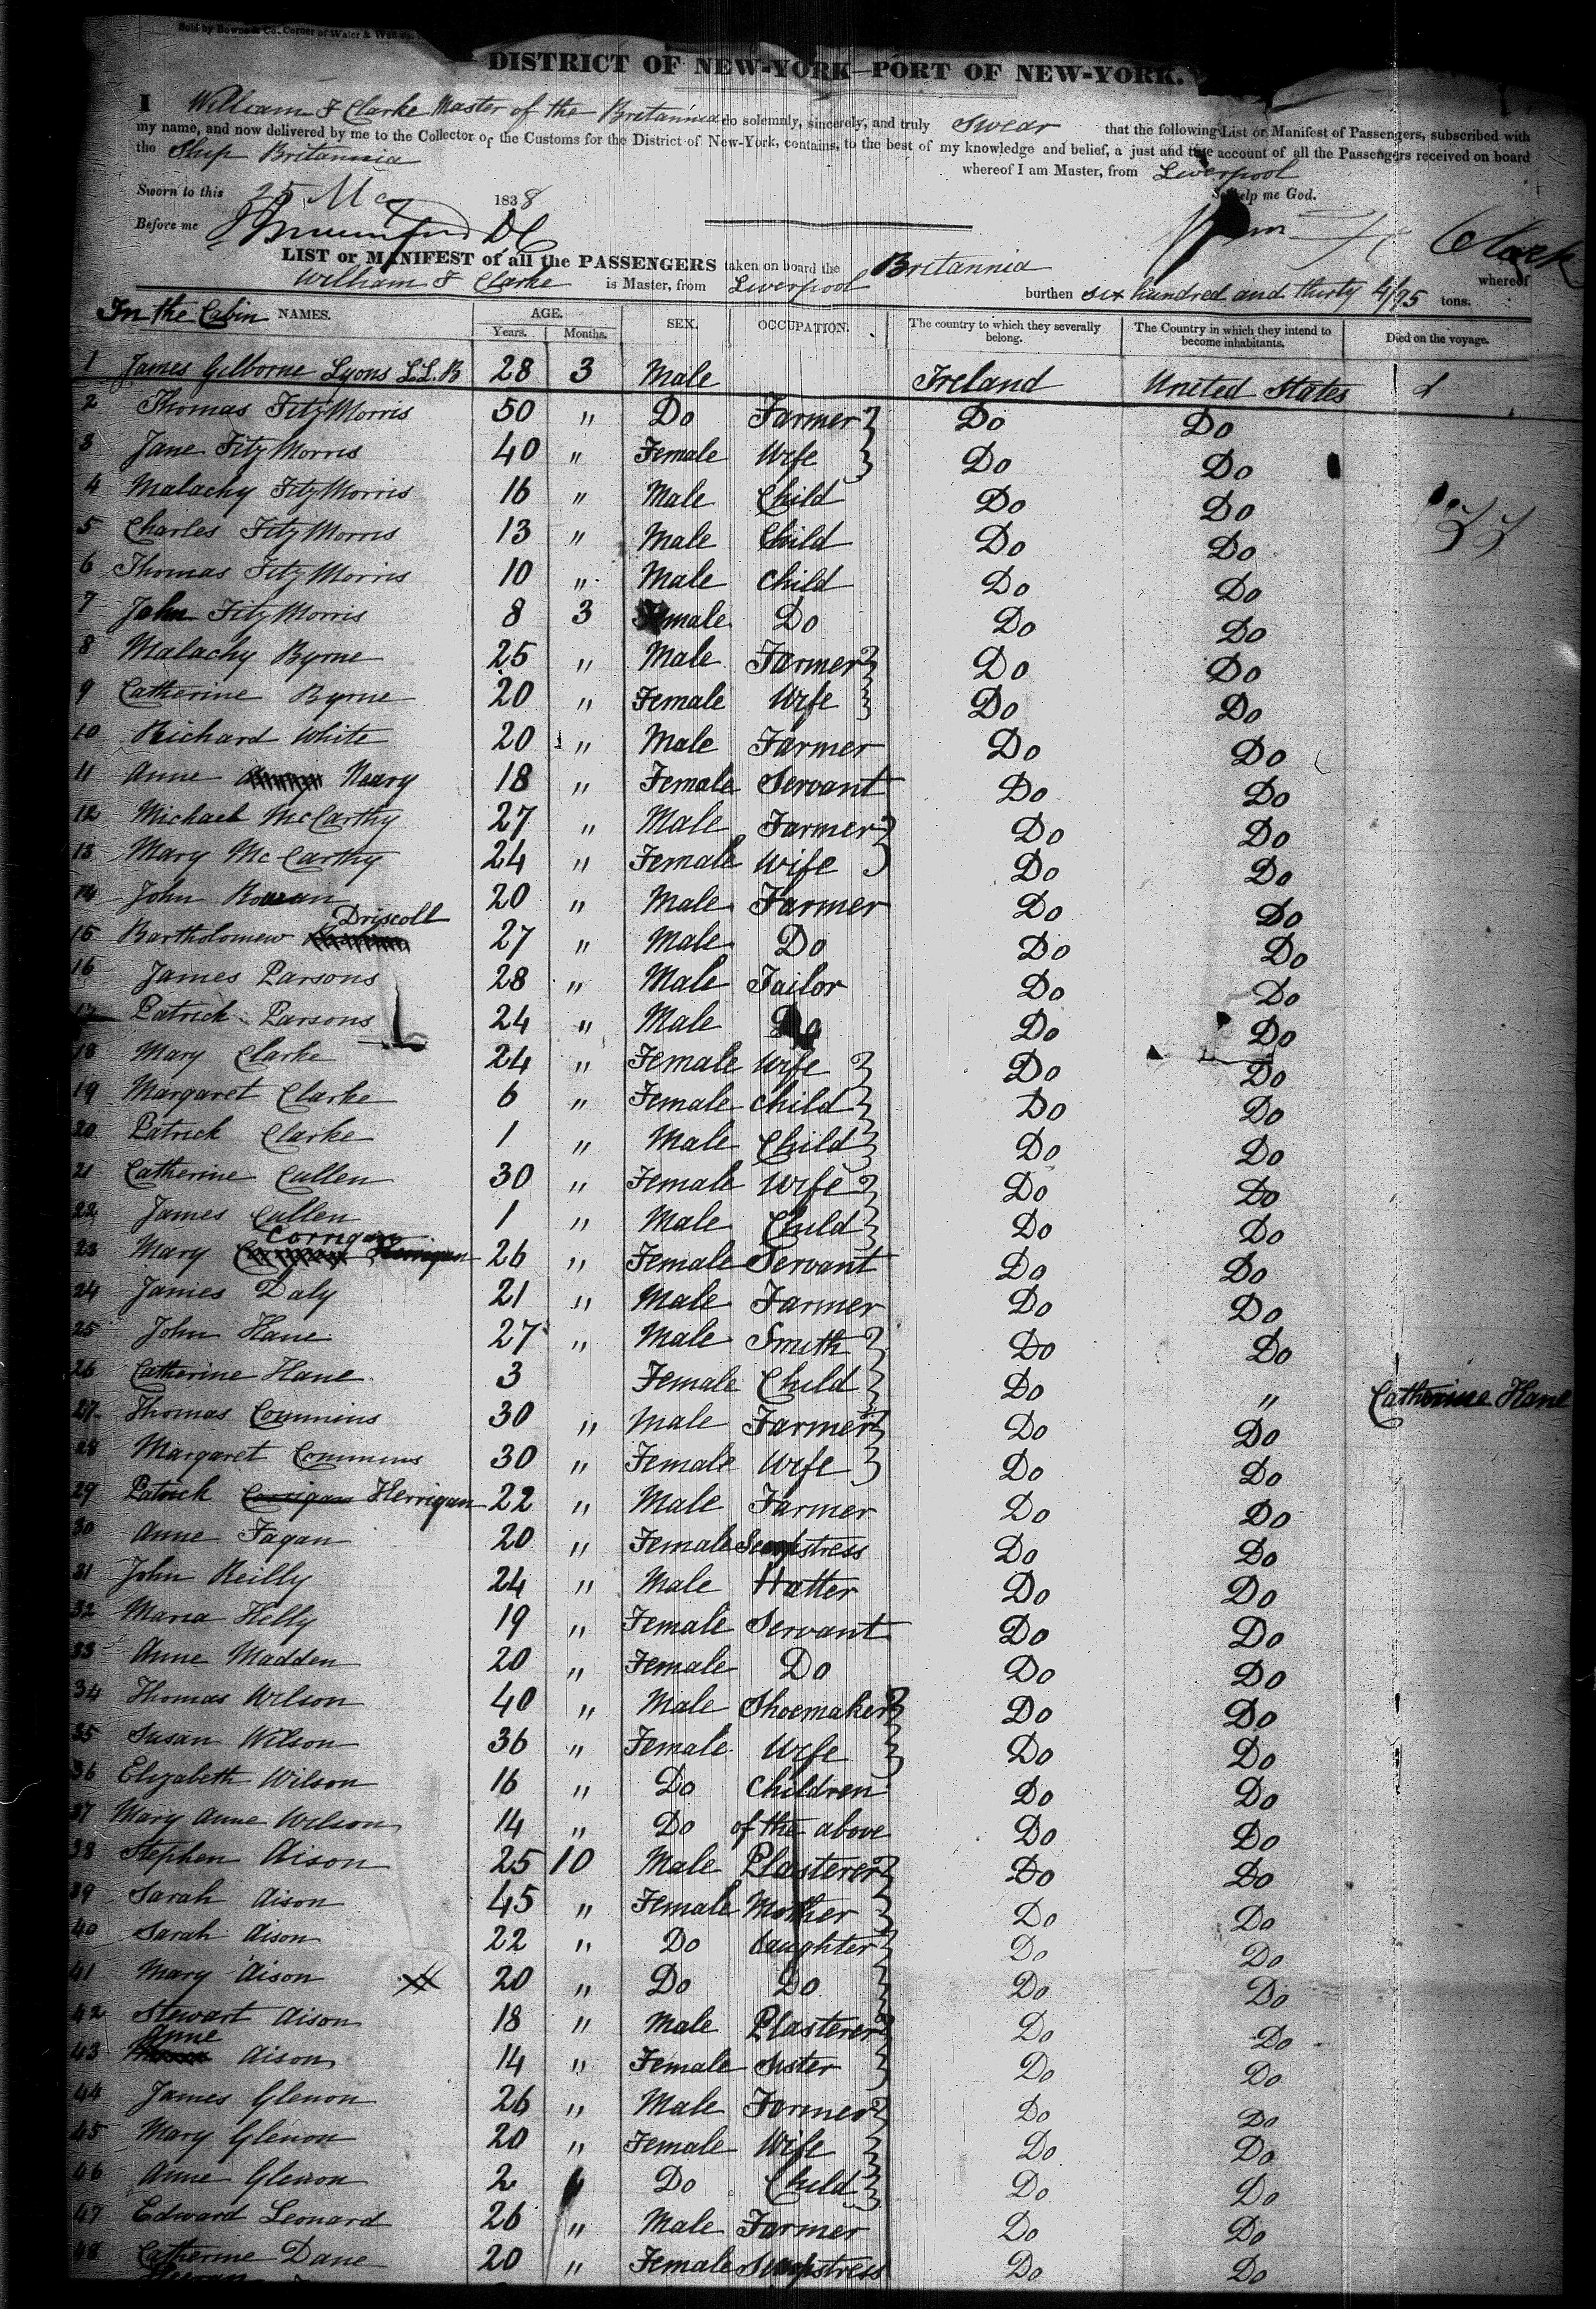 Sold by Bowne & Co. Corner of Water & Wall sts.
DISTRICT OF NEW-YORK—PORT OF NEW-YORK.
I William F Clarke Master of the Britannia do solemnly, sincerely, and truly swear that the following List or Manifest of Passengers, subscribed with
my name, and now delivered by me to the Collector of the Customs for the District of New-York, contains, to the best of my knowledge and belief, a just and true account of all the Passengers received on board
the Ship Britannia whereof I am Master, from Liverpool
Sworn to this 25 May 1838 So help me God.
Before me Wm F Clark
LIST or MANIFEST of all the PASSENGERS taken on board the Britannia whereof
William F Clarke is Master, from Liverpool burthen six hundred and thirty 4/95 tons.
In the Cabin NAMES. AGE. Years. Months. SEX. OCCUPATION. The country to which they severally belong. The Country in which they intend to become inhabitants. Died on the voyage.
1 James Gilborne Lyons LL.B 28 3 Male Ireland United States
2 Thomas FitzMorris 50 " Do Farmer Do Do
3 Jane FitzMorris 40 " Female Wife Do Do
4 Malachy FitzMorris 16 " Male Child Do Do
5 Charles FitzMorris 13 " Male Child Do Do
6 Thomas FitzMorris 10 " Male Child Do Do
7 John FitzMorris 8 3 male Do Do Do
8 Malachy Byrne 25 " Male Farmer Do Do
9 Catherine Byrne 20 " Female Wife Do Do
10 Richard White 20 " Male Farmer Do Do
11 Anne Neary 18 " Female Servant Do Do
12 Michael McCarthy 27 " Male Farmer Do Do
13 Mary McCarthy 24 " Female Wife Do Do
14 John 20 " Male Farmer Do Do
15 Bartholomew Driscoll 27 " Male Do Do Do
16 James Parsons 28 " Male Tailor Do Do
17 Patrick Parsons 24 " Male Do Do Do
18 Mary Clarke 24 " Female Wife Do Do
19 Margaret Clarke 6 " Female Child Do Do
20 Patrick Clarke 1 " Male Child Do Do
21 Catherine Cullen 30 " Female Wife Do Do
22 James Cullen 1 " Male Child Do Do
23 Mary Corrigan Kerrigan 26 " Female Servant Do Do
24 James Daly 21 " Male Farmer Do Do
25 John Kane 27 " Male Smith Do Do
26 Catherine Kane 3 Female Child Do " Catherine Kane
27 Thomas Commins 30 " Male Farmer Do Do
28 Margaret Commins 30 " Female Wife Do Do
29 Patrick Corrigan Kerrigan 22 " Male Farmer Do Do
30 Anne Fagan 20 " Female Sempstress Do Do
31 John Reilly 24 " Male Hatter Do Do
32 Maria Kelly 19 " Female Servant Do Do
33 Anne Madden 20 " Female Do Do Do
34 Thomas Wilson 40 " Male Shoemaker Do Do
35 Susan Wilson 36 " Female Wife Do Do
36 Elizabeth Wilson 16 " Do Children Do Do
37 Mary Anne Wilson 14 " Do of the above Do Do
38 Stephen Aison 25 10 Male Plasterer Do Do
39 Sarah Aison 45 " Female Mother Do Do
40 Sarah Aison 22 " Do Daughter Do Do
41 Mary Aison 20 " Do Do Do Do
42 Stewart Aison 18 " Male Plasterer Do Do
43 Anne Aison 14 " Female Sister Do Do
44 James Glenon 26 " Male Farmer Do Do
45 Mary Glenon 20 " Female Wife Do Do
46 Anne Glenon 2 Do Child Do Do
47 Edward Leonard 26 " Male Farmer Do Do
48 Catherine Dane 20 " Female Sempstress Do Do